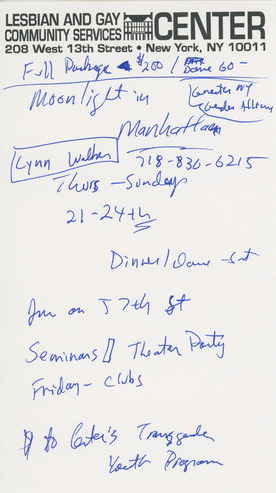 LESBIAN AND GAY
COMMUNITY SERVICES CENTER
208 West 13th Street • New York, NY 10011
Full Package $200 / Dance 60-
Moonlight in
Greater NY
Gender Alliance
Manhattan
Lynn Walker 718-836-6215
Thurs - Sunday
21-24th
Dinner/Dance Sat
Inn on 57th St
Seminars Theater Party
Friday - Clubs
to Center's Transgender
Youth Program